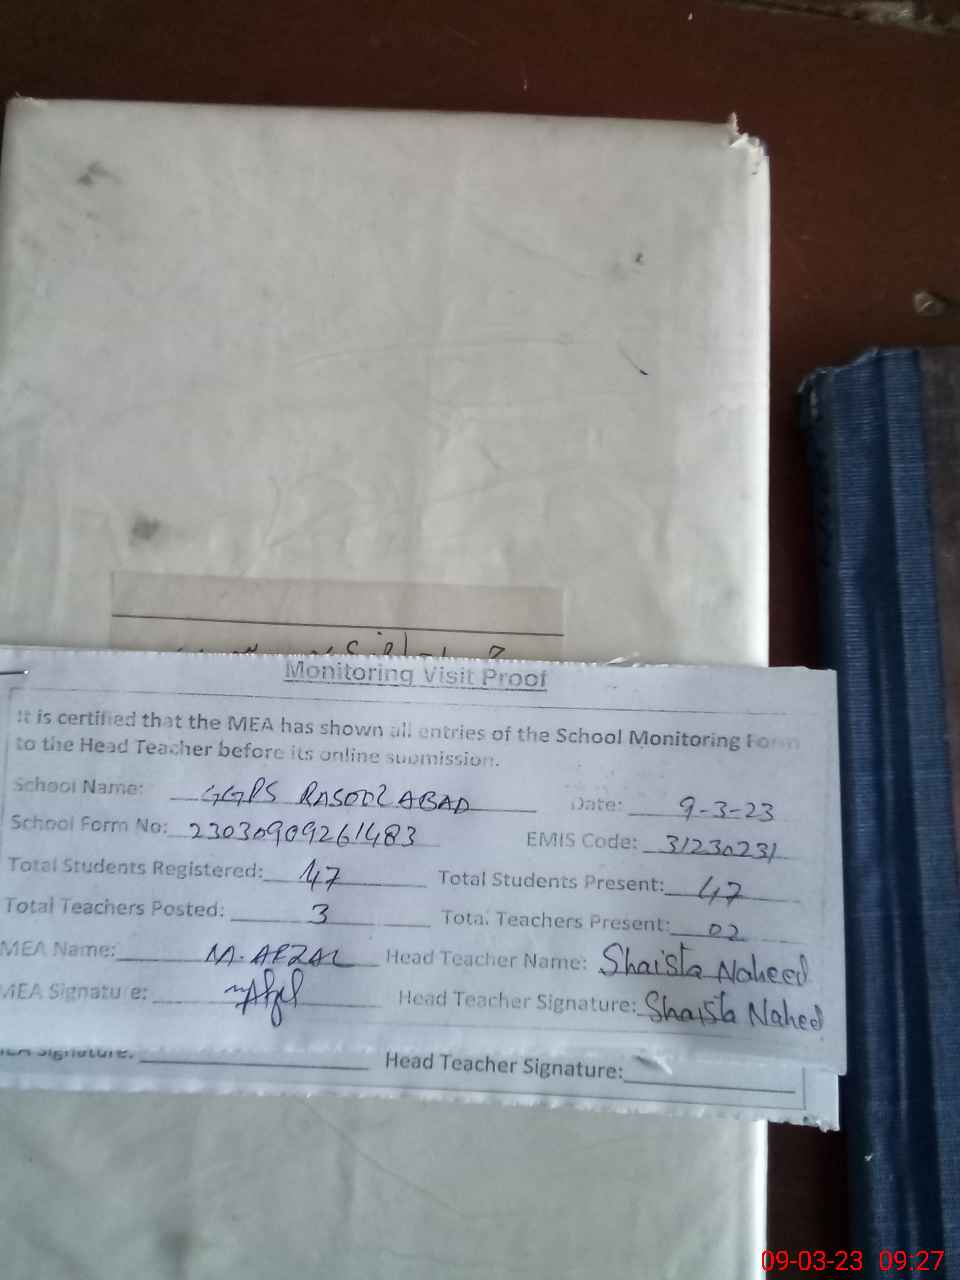 Monitoring Visit Proof
It is certified that the MEA has shown all entries of the School Monitoring Form
to the Head Teacher before its online submission.
School Name: GGPS RASOOLABAD Date: 9-3-23
School Form No: 23030909261483 EMIS Code: 31230231
Total Students Registered: 47 Total Students Present: 47
Total Teachers Posted: 3 Total Teachers Present: 02
MEA Name: M. AFZAL Head Teacher Name: Shaista Naheed
MEA Signature: Head Teacher Signature: Shaista Naheed
MEA Signature: Head Teacher Signature:
09-03-23 09:27